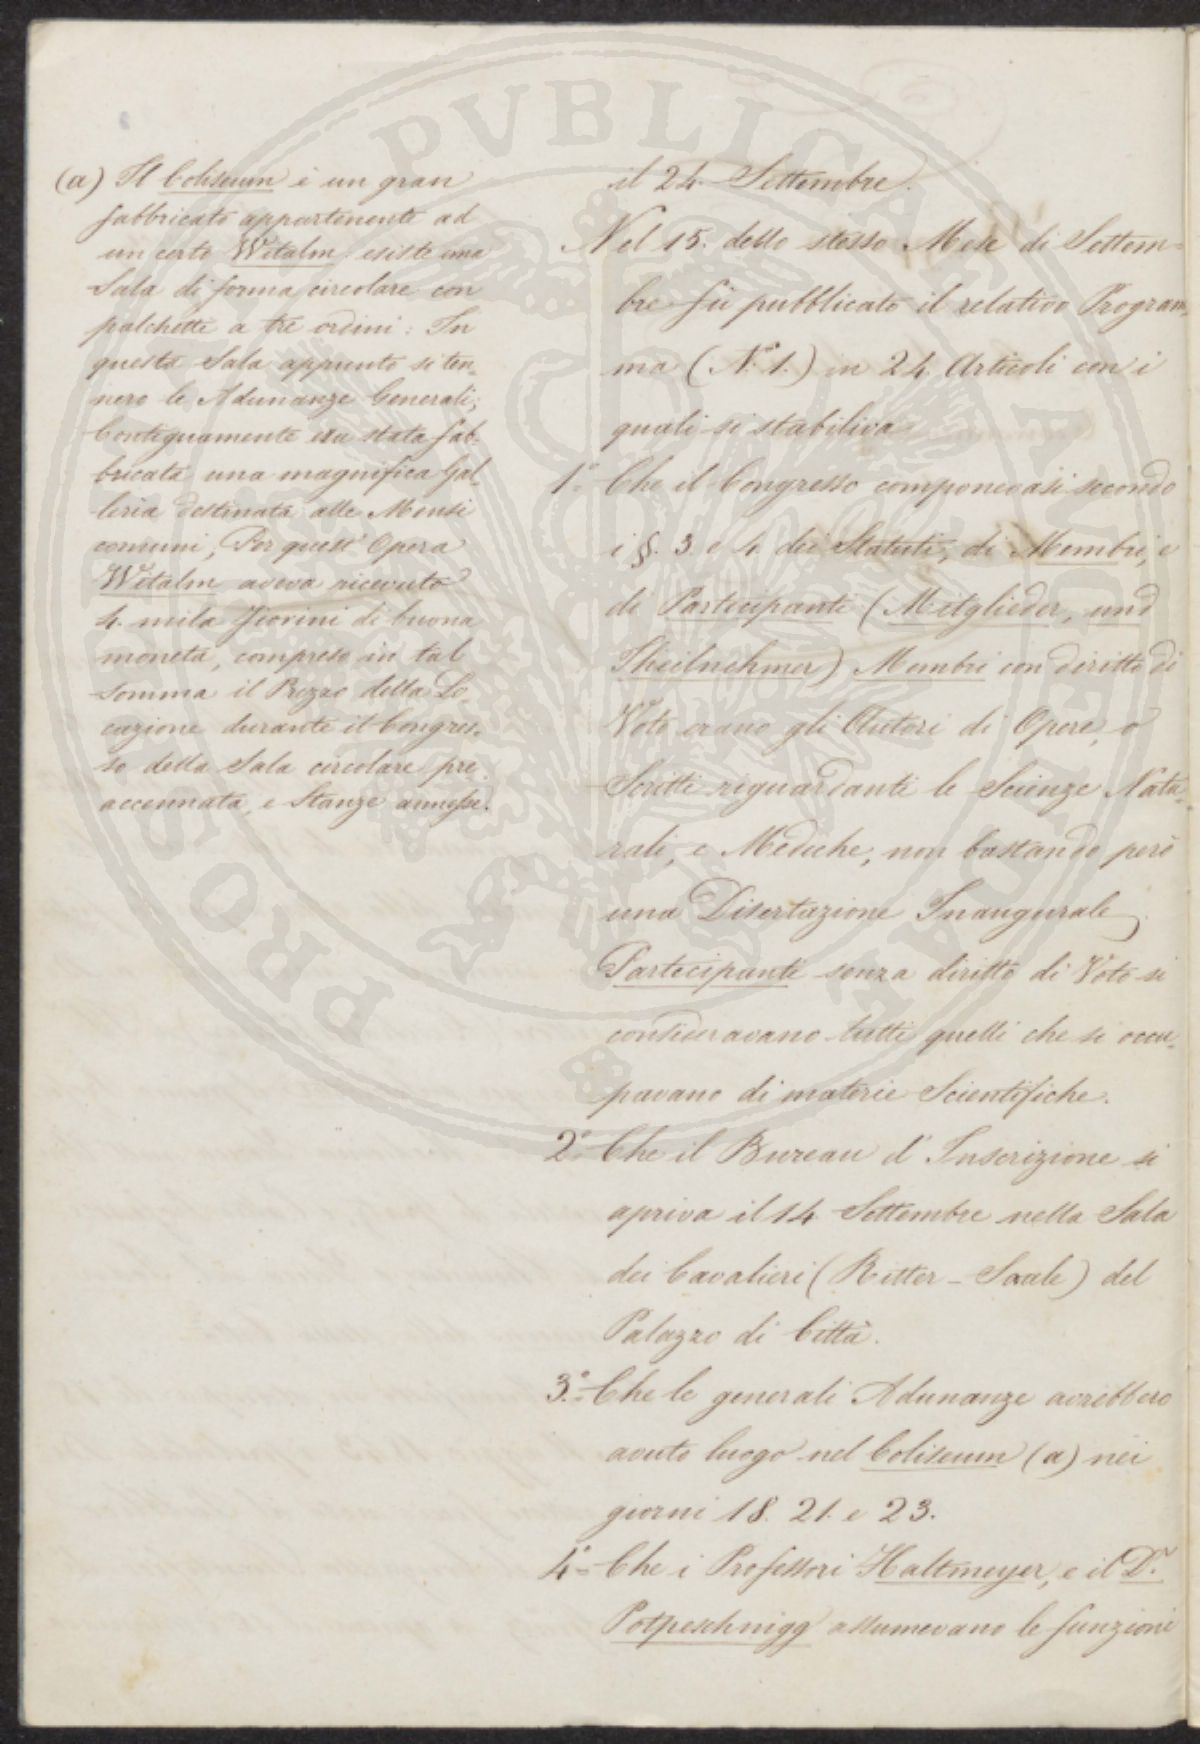 (a) Il Coliseum è un gran
fabbricato appartenente ad
un certo Witalm: esiste una
Sala di forma circolare con
palchetti a tre ordini: In
questa Sala appunto si ten-
nero le Adunanze Generali;
Contiguamente era stata fab-
bricata una magnifica Gal-
leria destinata alle Mense
comuni, Per quest' Opera
Witalm aveva ricevuto
4. mila Fiorini di buona
moneta, compreso in tal
Somma il Prezzo della Lo-
cazione durante il Congres-
so della Sala circolare pre
accennata, e Stanze annesse.
il 24. Settembre.
Nel 15. dello stesso Mese di Settem-
bre fù pubblicato il relativo Program-
ma (N.° 1.) in 24 Articoli con i
quali si stabiliva
1.° Che il Congresso componevasi secondo
i §. 3. e 4. dei Statuti, di Membri, e
di Partecipanti (Mitglieder, und
Theilnehmer) Membri con diritto di
Voto erano gli Autori di Opere, o
Scritti riguardanti le Scienze Natu-
rali, e Mediche, non bastando però
una Disertazione Inaugurale
Partecipanti senza diritto di Voto si
consideravano tutti quelli che si occu-
pavano di materie Scientifiche.
2.° Che il Bureau d' Inscrizione si
apriva il 14 Settembre nella Sala
dei Cavalieri (Ritter-Saale) del
Palazzo di Città.
3.° Che le generali Adunanze avrebbero
avuto luogo nel Coliseum (a) nei
giorni 18. 21. e 23.
4.° Che i Professori Haltmeyer, e il Dr.
Potpeschnigg assumevano le funzioni
PUBLICA